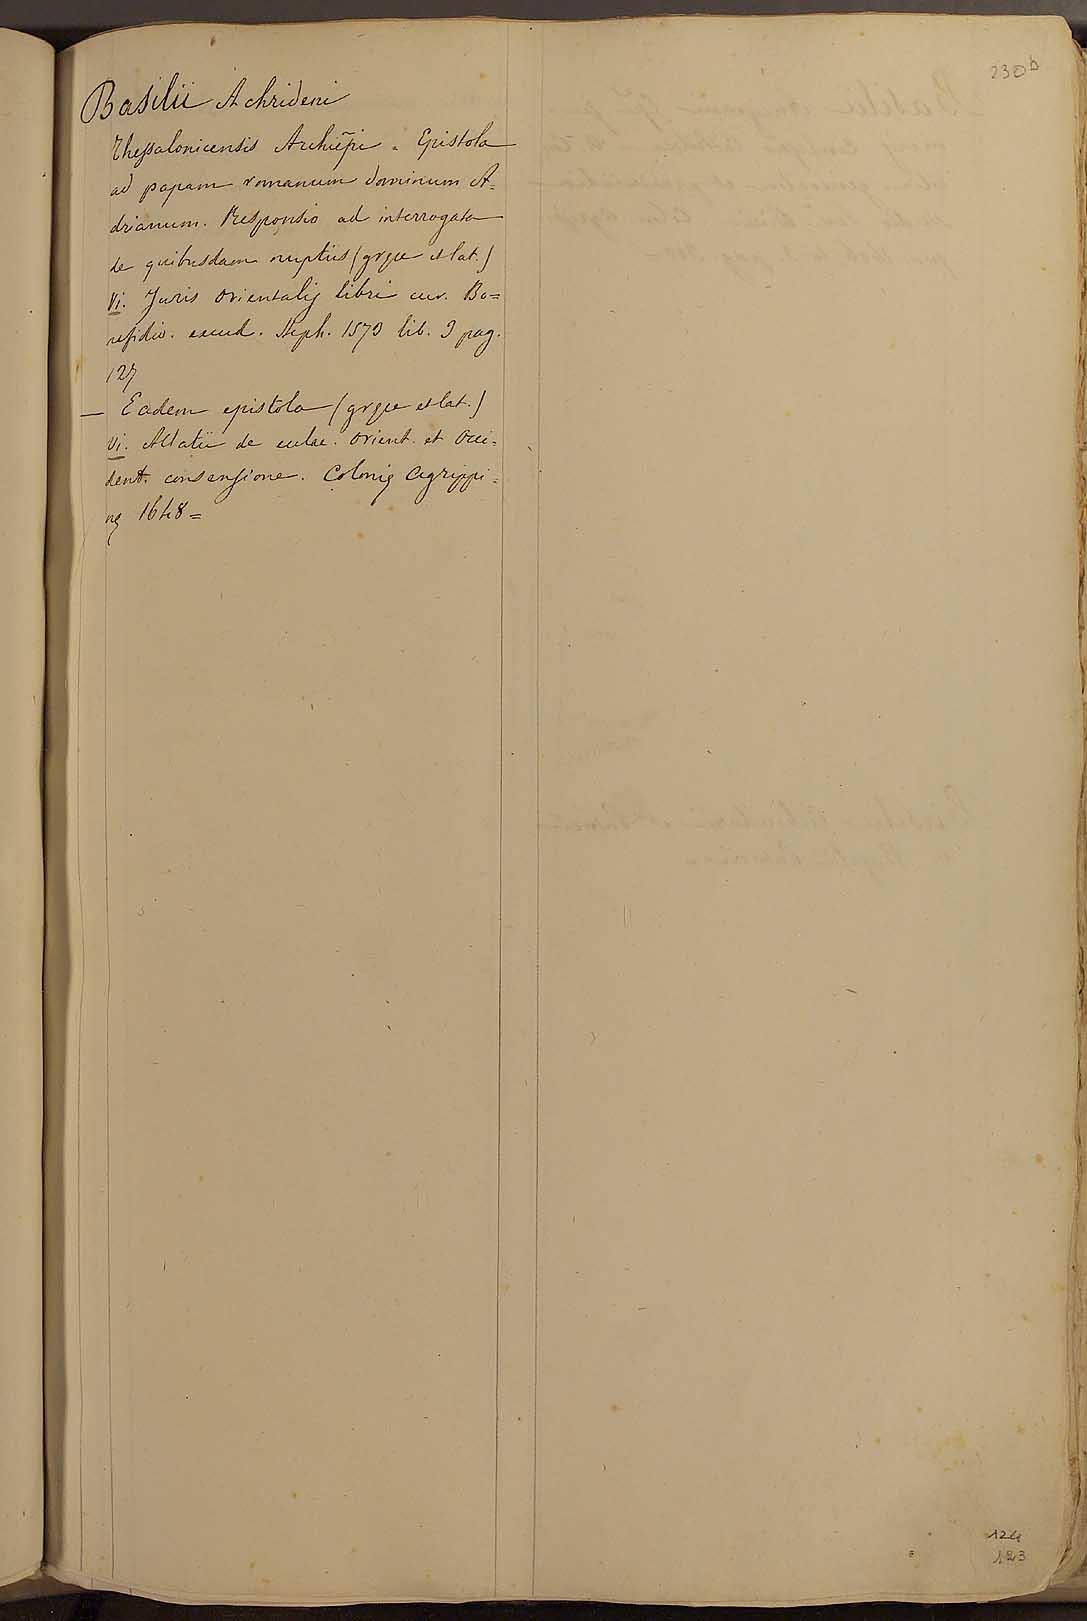 230b
Basilii Achrideni
Thessalonicensis Archiẽpi. Epistola
ad papam romanum dominum A=
drianum. Responsio ad interrogata
de quibusdam nuptiis (gręce et lat.)
Vi. Juris Orientalis libri cur. Bo=
nefidio. excud. Steph. 1573 lib. 3 pag.
127
— Eadem epistola (gręce et lat.)
Vi. Allatii de eccłae. Orient. et Occi=
dent. consensione. Colonię Agrippi=
nę 1648=
124
123